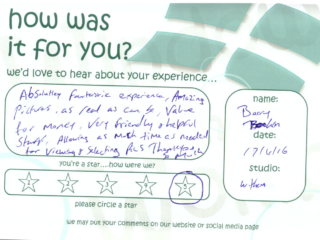 how was
it for you?
we'd love to hear about your experience...
Absolutley fantastic experience, Amazing
Pictures, as real as can be, Value
for money, Very friendly & helpful
Staff, Allowing as much time as needed
for Viewing & Selecting Pics Thankyou so much
name:
Barry
date:
17/4/16
studio:
you're a star....how were we?
1 2 3 4 5
please circle a star
we may put your comments on our website or social media page